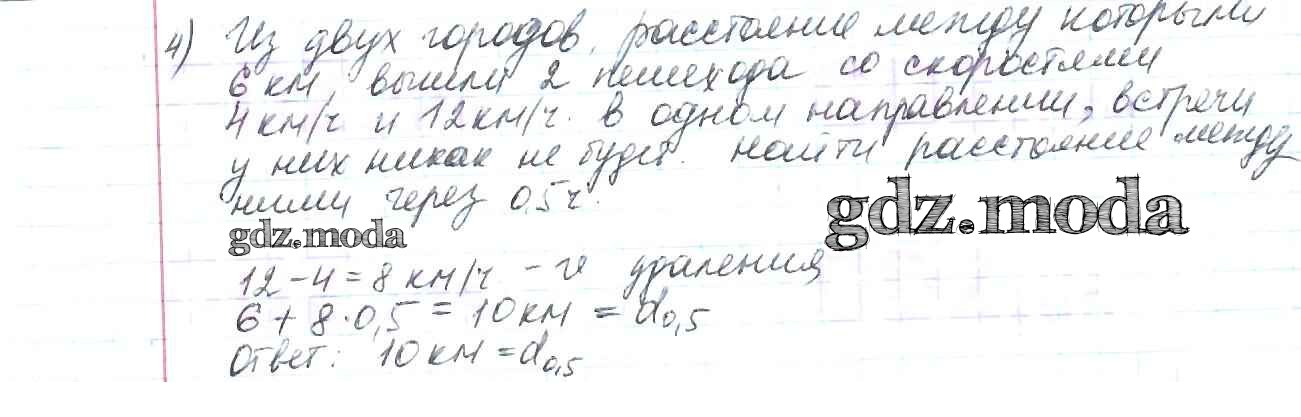 4) Из двух городов, расстояние между которыми
6 км, вышли 2 пешехода со скоростями
4 км/ч и 12 км/ч. В одном направлении, встречи
у них никак не будет. Найти расстояние между
ними через 0,5 ч.
gdz.moda
gdz.moda
12 - 4 = 8 км/ч - удаления
6 + 8 · 0,5 = 10 км = d0,5
Ответ: 10 км = d0,5